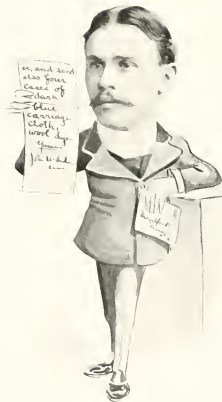 er, and send
also four
cases of
dark
blue
carriage
cloth,
wool dye
John H.